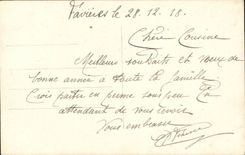 le 28.12.18.
Chère Cousine
Meilleurs souhaits et vœux de
bonne année à toute la famille
Crois partir en perme sous peu En
attendant de vous revoir
Vous embrasse